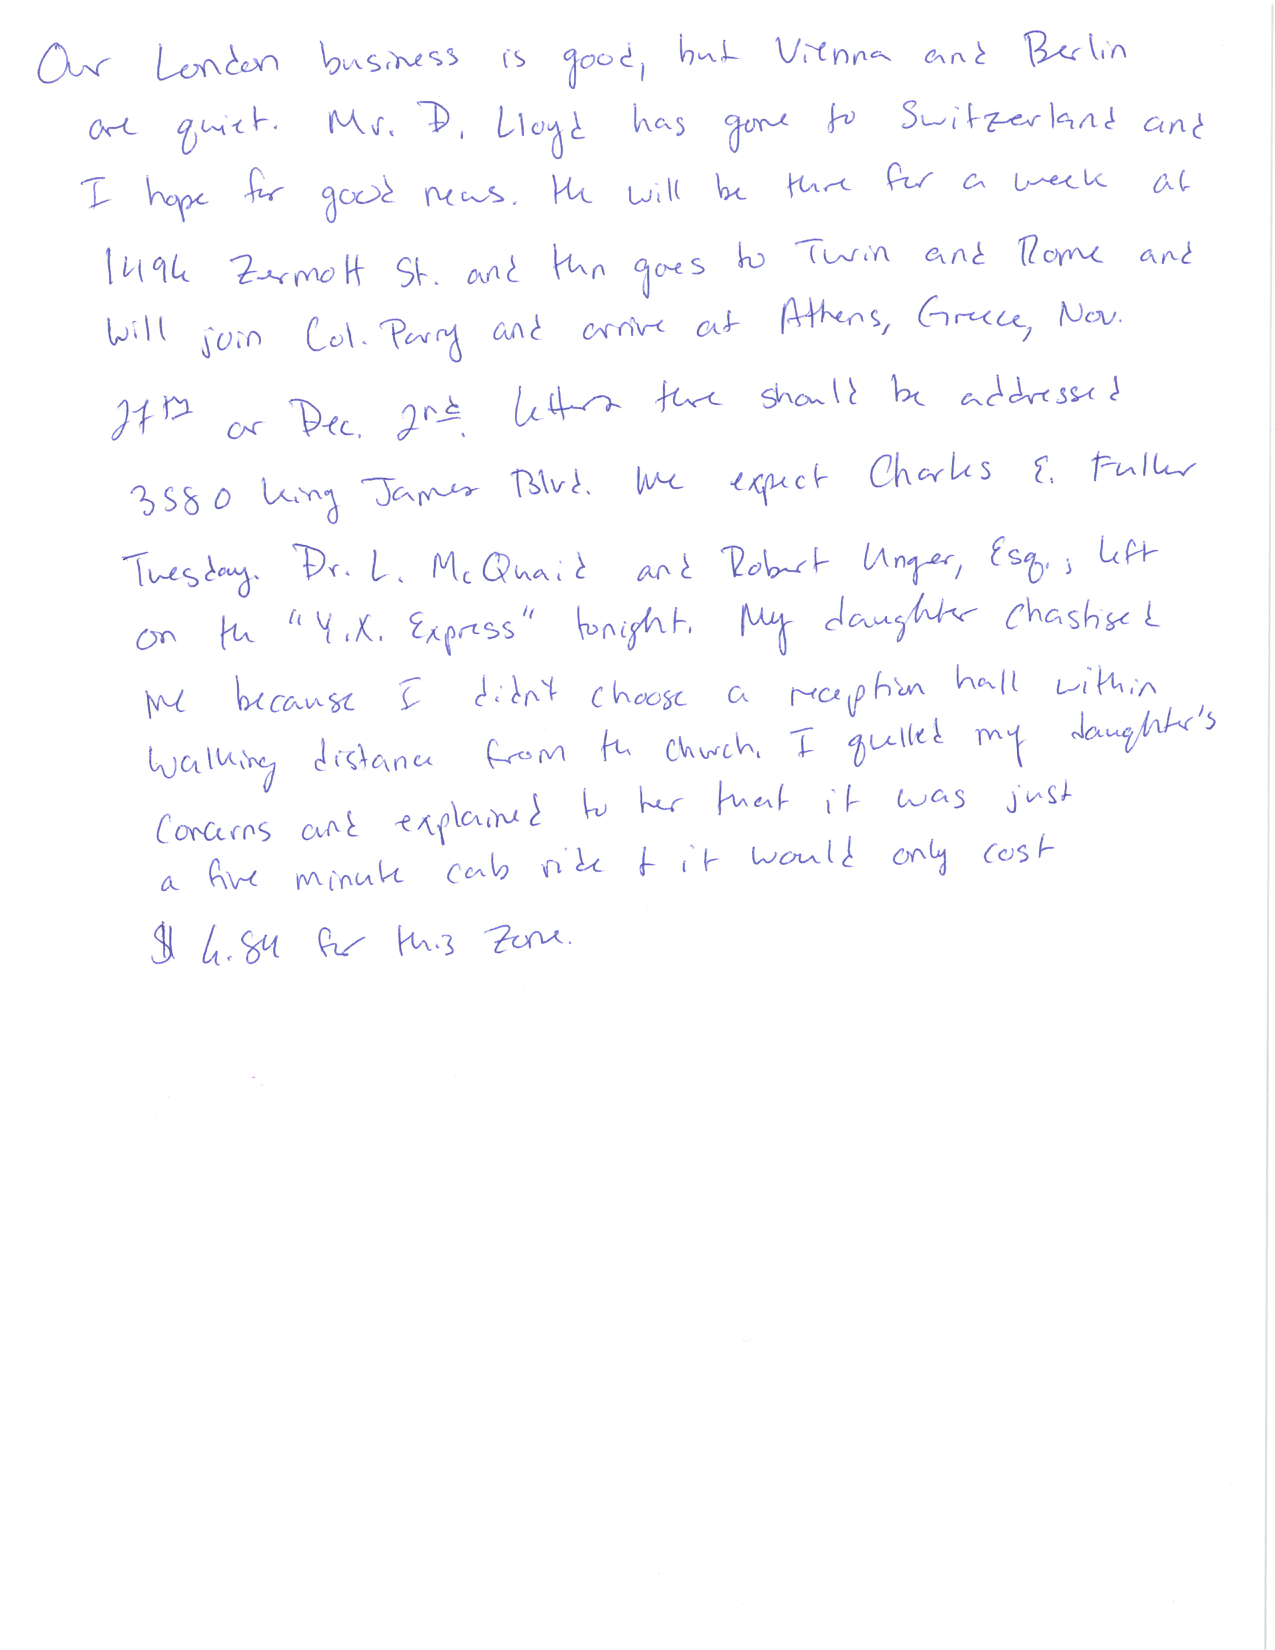 Our London business is good, but Vienna and Berlin
are quiet. Mr. D. Lloyd has gone to Switzerland and
I hope for good news. He will be there for a week at
1496 Zermott St. and then goes to Turin and Rome and
will join Col. Parry and arrive at Athens, Greece, Nov.
27th or Dec. 2nd. Letters there should be addressed
3580 King James Blvd. We expect Charles E. Fuller
Tuesday. Dr. L. McQuaid and Robert Unger, Esq., left
on the "Y.X. Express" tonight. My daughter chastised
me because I didn't choose a reception hall within
walking distance from the church. I quelled my daughter's
concerns and explained to her that it was just
a five minute cab ride & it would only cost
$6.84 for this zone.